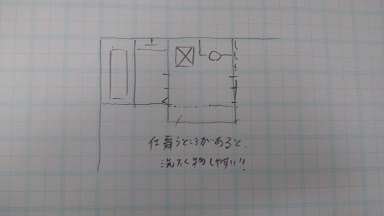 仕舞うところがあると、
洗たく物しやすい!!